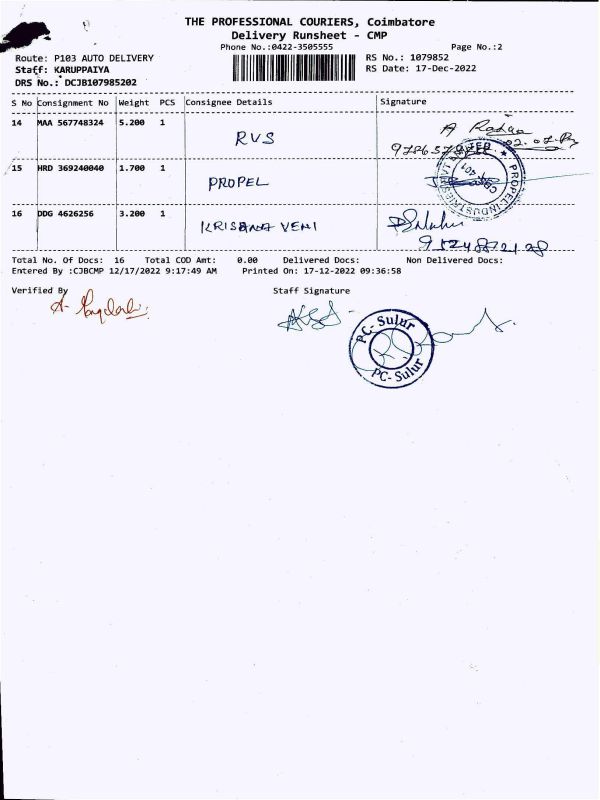 THE PROFESSIONAL COURIERS, Coimbatore
Delivery Runsheet - CMP
Phone No.:0422-3505555 Page No.:2
Route: P103 AUTO DELIVERY RS No.: 1079852
Staff: KARUPPAIYA RS Date: 17-Dec-2022
DRS No.: DCJB107985202
S No Consignment No Weight PCS Consignee Details Signature
14 MAA 567748324 5.200 1 RVS
15 HRD 369240040 1.700 1 PROPEL
PROPEL INDUSTRIES
16 DDG 4626256 3.200 1 KRISHNA VENI
Total No. Of Docs: 16 Total COD Amt: 0.00 Delivered Docs: Non Delivered Docs:
Entered By :CJBCMP 12/17/2022 9:17:49 AM Printed On: 17-12-2022 09:36:58
Verified By Staff Signature
PC- Sulur
PC- Sulur